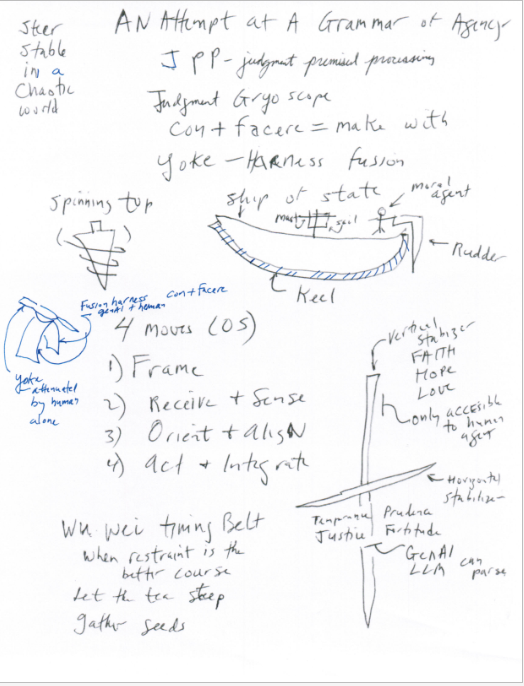 Steer
Stable
in a
Chaotic
world
AN Attempt at A Grammar of Agency
JPP - judgment premised processing
Judgment Gryoscope
con + facere = make with
yoke - HARNess fusion
spinning top
ship of state
moral
agent
mast
sail
Rudder
Keel
Fusion harness con + facere
genAI + human
Yoke
attenuated
by human
alone
4 moves (OS)
1) Frame
2) Receive + Sense
3) Orient + AligN
4) act + Integrate
Vertical
Stabilizer
FAITH
HOPE
LOVE
only accessible
to human
agent
Horizontal
Stabilizer
Temprance Prudence
Justice Fortitude
GenAI can
LLM parse
Wu wei timing Belt
when restraint is the
better course
Let the tea steep
gather seeds